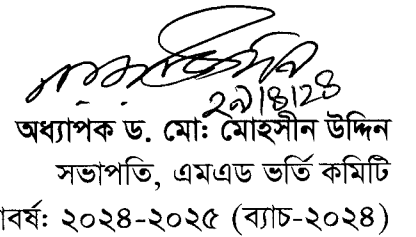 ২৯/৪/২৪
অধ্যাপক ড. মো: মোহসীন উদ্দিন
সভাপতি, এমএড ভর্তি কমিটি
াবর্ষ: ২০২৪-২০২৫ (ব্যাচ-২০২৪)